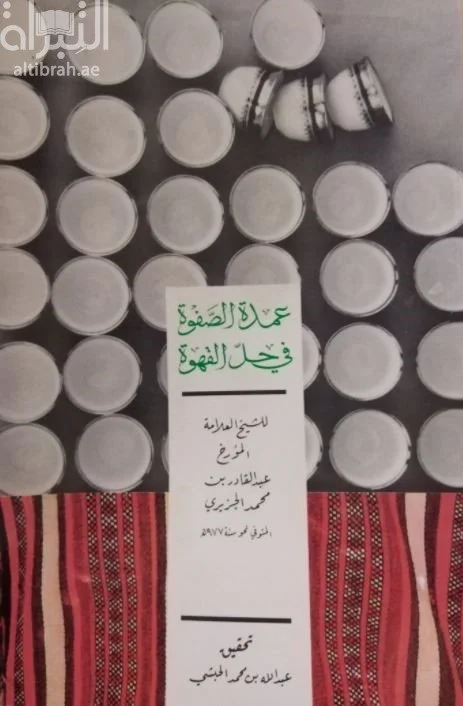 التبراة
altibrah.ae
عمدة الصفوة
في حل القهوة
للشيخ العلامة
المؤرخ
عبدالقادر بن
محمد الجزيري
المتوفي نحو سنة ٩٧٧هـ
تحقيق
عبدالله بن محمد الحبشي